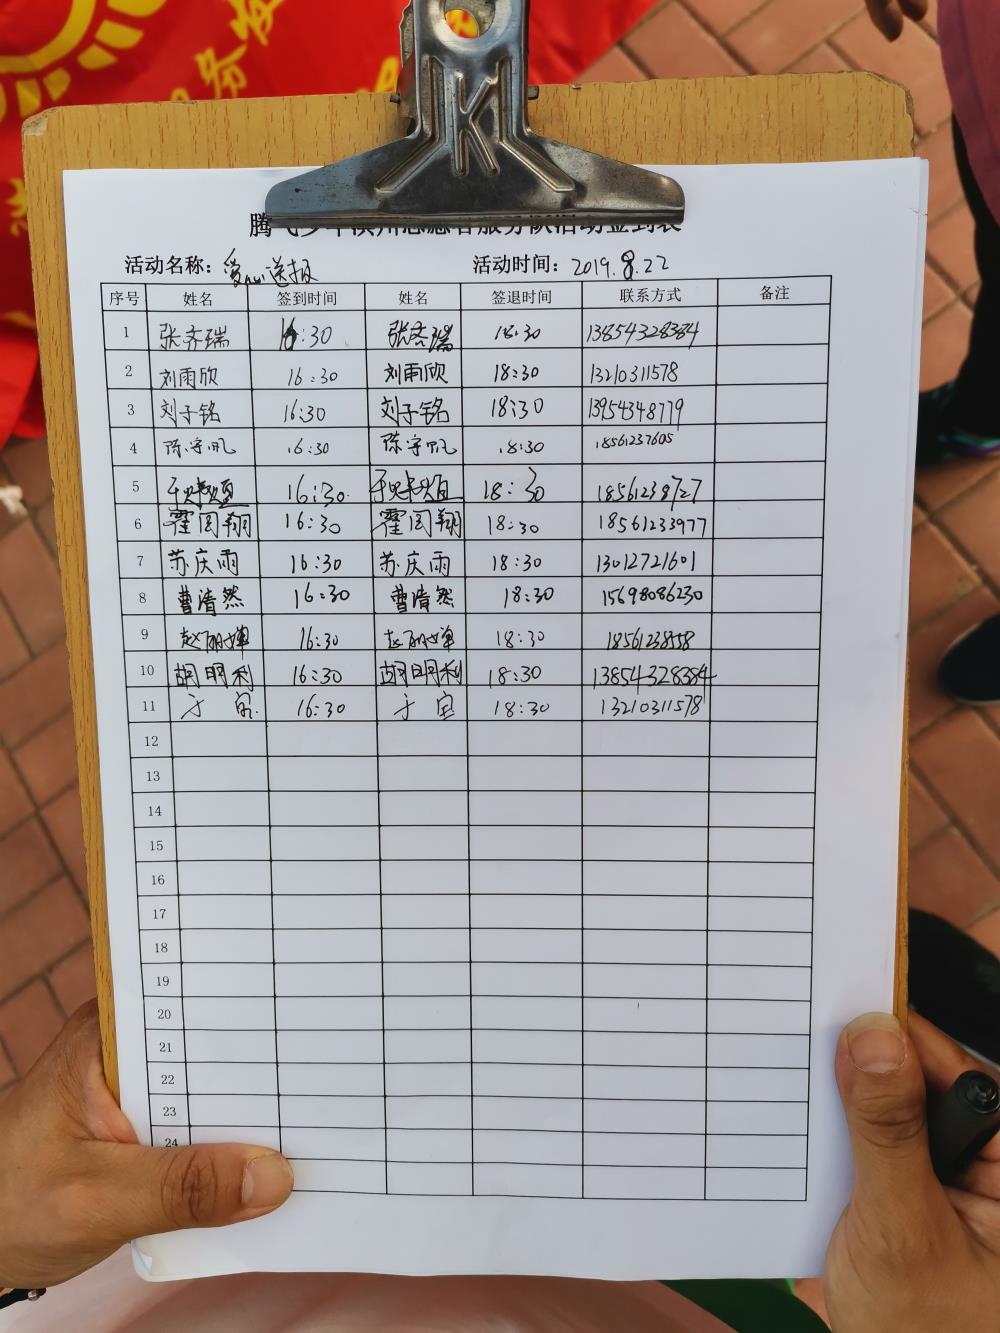 活动名称：爱心送报 活动时间：2019.8.22
序号 姓名 签到时间 姓名 签退时间 联系方式 备注
1 张齐瑞 16:30 张齐瑞 18:30 13854328384
2 刘雨欣 16:30 刘雨欣 18:30 13210311578
3 刘子铭 16:30 刘子铭 18:30 13954348779
4 陈宇帆 16:30 陈宇帆 18:30 18561237605
5 16:30 18:30 18561238727
6 霍闰翔 16:30 霍闰翔 18:30 18561233977
7 苏庆雨 16:30 苏庆雨 18:30 13012721601
8 曹清然 16:30 曹清然 18:30 15698086230
9 16:30 18:30 18561238558
10 胡明利 16:30 胡明利 18:30 13854328384
11 16:30 18:30 13210311578
12
13
14
15
16
17
18
19
20
21
22
23
24